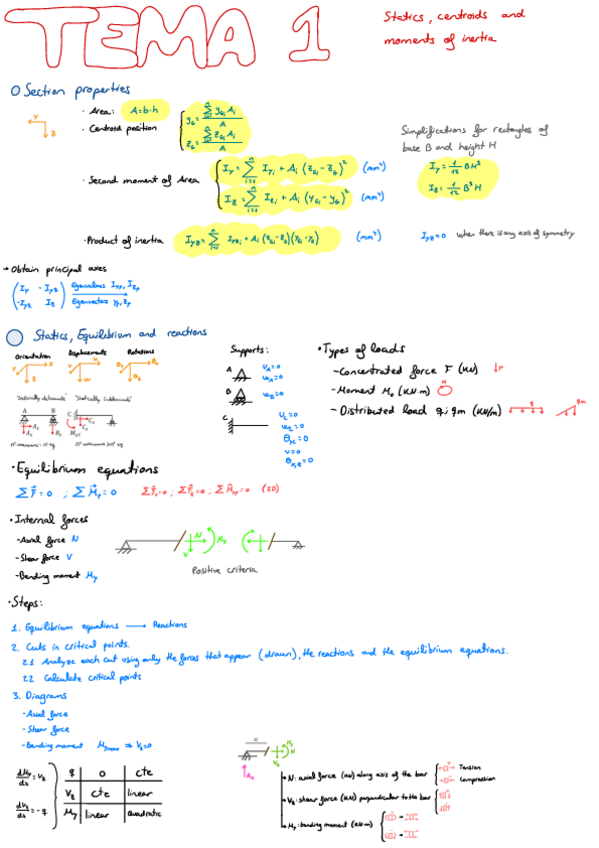 TEMA 1
Statics, centroids and
moments of inertia
Section properties
· Area: A=b·h
· Centroid position
y_G = Σ y_Gi A_i / A
z_G = Σ z_Gi A_i / A
Simplifications for rectangles of
base B and height H
· Second moment of Area
I_y = Σ I_yi + A_i (z_Gi - z_G)² (mm⁴)
I_z = Σ I_zi + A_i (y_Gi - y_G)² (mm⁴)
I_y = 1/12 BH³
I_z = 1/12 B³H
· Product of inertia
I_yz = Σ I_yzi + A_i (z_Gi - z_G)(y_Gi - y_G) (mm⁴)
I_yz = 0 when there is any axis of symmetry
→ Obtain principal axes
(I_y -I_yz
-I_yz I_z)
Eigenvalues I_yp, I_zp
Eigenvectors y_p, z_p
Statics, Equilibrium and reactions
Orientation Displacements Rotations
Supports:
A
B
C
θ_yc = 0
· Types of loads
- Concentrated force F (kN)
- Moment M_o (kN·m)
- Distributed load q; q_m (kN/m)
· Equilibrium equations
ΣF = 0 ; ΣM_p = 0
(2D)
· Internal forces
- Axial force N
- Shear force V
- Bending moment M_y
N
V
M_y
Positive criteria
· Steps:
1. Equilibrium equations → Reactions
2. Cuts in critical points.
2.1 Analyze each cut using only the forces that appear (drawn), the reactions and the equilibrium equations.
2.2 Calculate critical points
3. Diagrams
- Axial force
- Shear force
- Bending moment M_ymax ⇒ V_z=0
dM_y/ds = V_z
dV_z/ds = -q
q 0 cte
V_z cte linear
M_y linear quadratic
x
N: axial force (kN) along axis of the bar
Tension
Compression
V_z: shear force (kN) perpendicular to the bar
M_y: bending moment (kN·m)